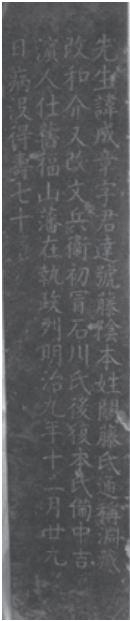 先生諱成章字君達號藤陰本姓關藤氏通稱淵藏
改和介又改文兵衞初冐石川氏後復本氏備中吉
濱人仕舊福山藩在執政列明治九年十二月廿九
日病沒得壽七十